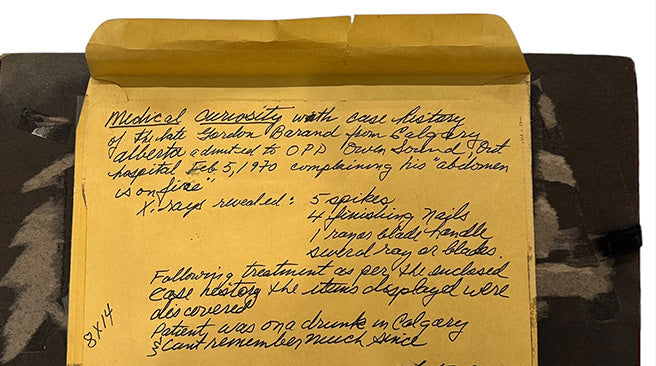 Medical Curiosity with case history
of the late Gordon Barand from Calgary
alberta admitted to O.P.D Owen Sound, Ont
hospital Feb 5, 1970 complaining his "abdomen
is on fire"
X-rays revealed: 5 spikes
4 finishing nails
1 razor blade handle
several razor blades.
Following treatment as per the enclosed
case history the items displayed were
discovered
Patient was on a drunk in Calgary
& can't remember much since
8x14